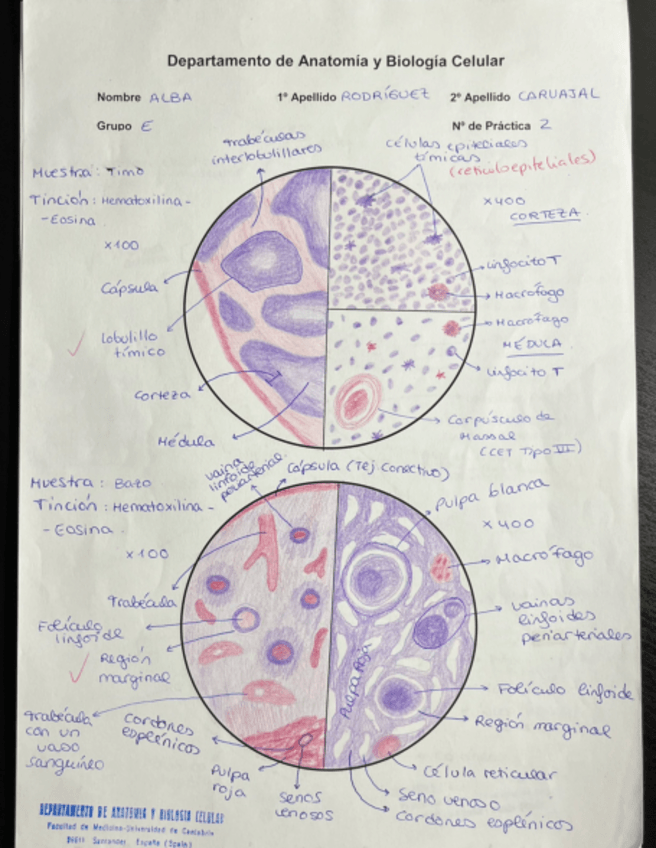 Departamento de Anatomía y Biología Celular
Nombre ALBA 1º Apellido RODRÍGUEZ 2º Apellido CARVAJAL
Grupo E Nº de Práctica 2
Muestra: Timo
Tinción: Hematoxilina-
-Eosina
x100
trabéculas
interlobulillares
Cápsula
lobulillo
tímico
Corteza
Médula
células epiteliales
tímicas
(reticuloepiteliales)
x400
CORTEZA
Linfocito T
Macrófago
Macrófago
MÉDULA
Linfocito T
Corpúsculo de
Hassal
(CET Tipo III)
Muestra: Bazo
Tinción: Hematoxilina-
-Eosina.
x100
vaina
linfoide
periarterial
Cápsula (Tej. conectivo)
Trabécula
Folículo
linfoide
Región
marginal
trabécula
con un
vaso
sanguíneo
Cordones
esplénicos
Pulpa
roja
Senos
venosos
Pulpa blanca
x400
Macrófago
vainas
linfoides
periarteriales
Pulpa Roja
Folículo linfoide
Región marginal
Célula reticular
Seno venoso
Cordones esplénicos
DEPARTAMENTO DE ANATOMIA Y BIOLOGIA CELULAR
Facultad de Medicina-Universidad de Cantabria
39011 Santander, España (Spain)